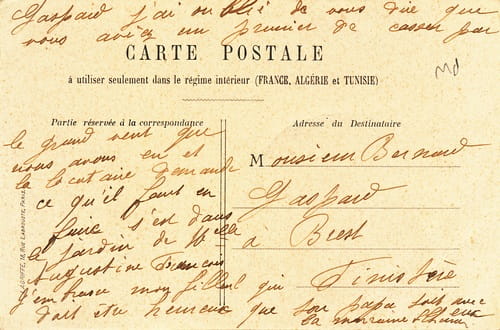 Gaspard j'ai oublié de vous dire que
vous aviez un prunier de casser par
CARTE POSTALE
à utiliser seulement dans le régime intérieur (FRANCE, ALGÉRIE et TUNISIE)
Md
Partie réservée à la correspondance
le grand vent que
nous avons eu et
la locataire demande
ce qu'il faut en
faire s'est dans
le jardin de
Augustine Francois
J'embrasse mon filleul qui
doit être heureux que son papa soit avec
eux
la marraine
Adresse du Destinataire
Monsieur Bernard
Gaspard
a Brest
Finistère
RUE LABROUSTE, PARIS